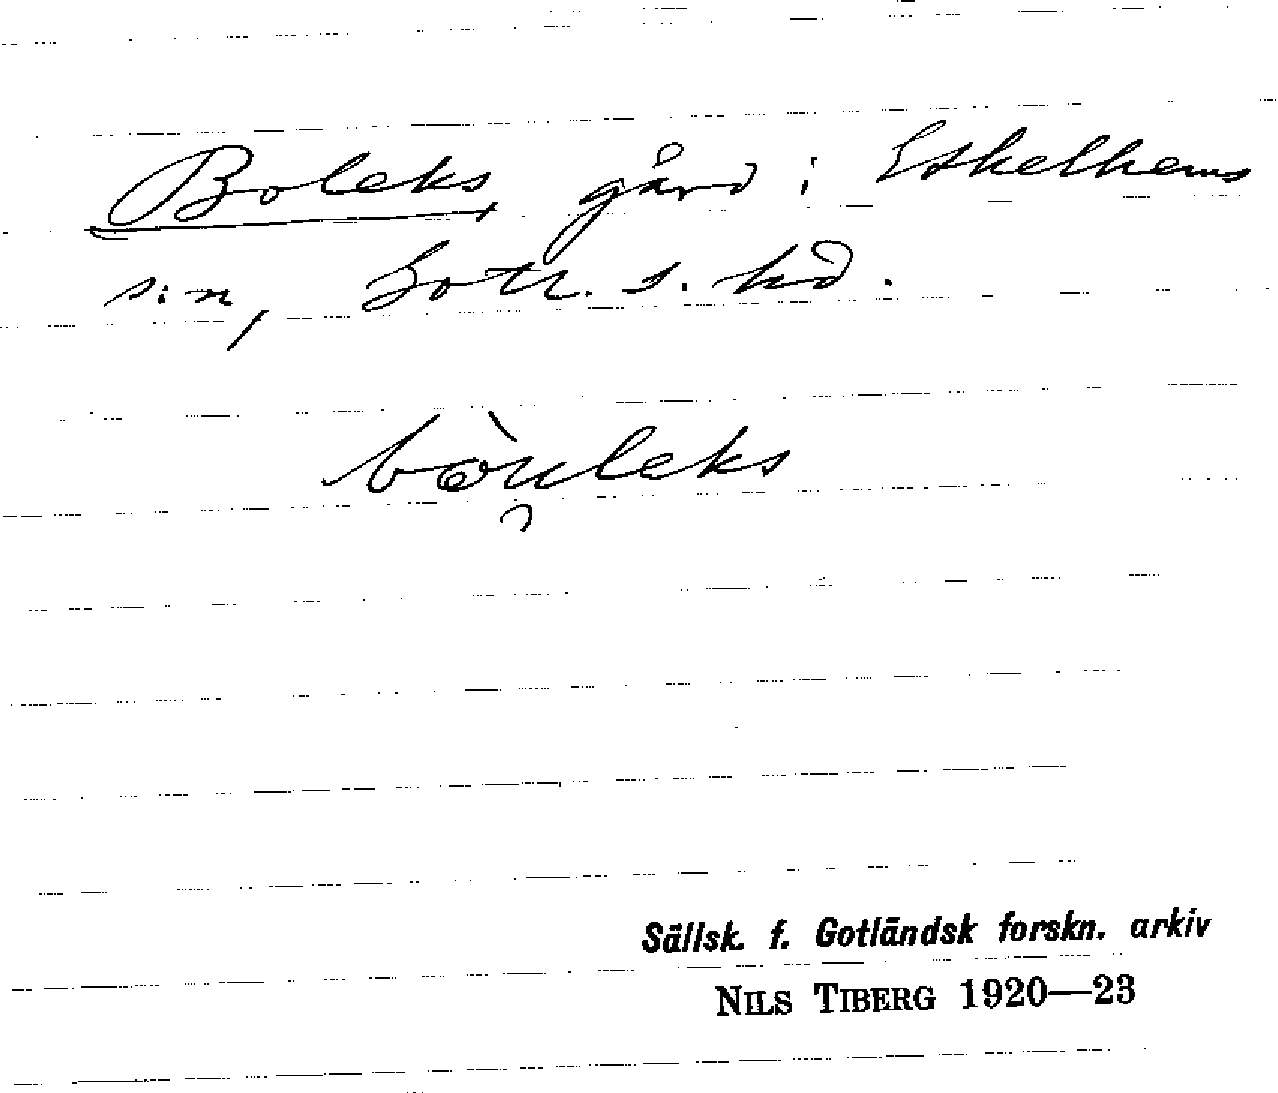 Boleks gård i Etkelhems
s:n, Gotl. s. hd.
bòu̯leks
Sällsk. f. Gotländsk forskn. arkiv
NILS TIBERG 1920—23